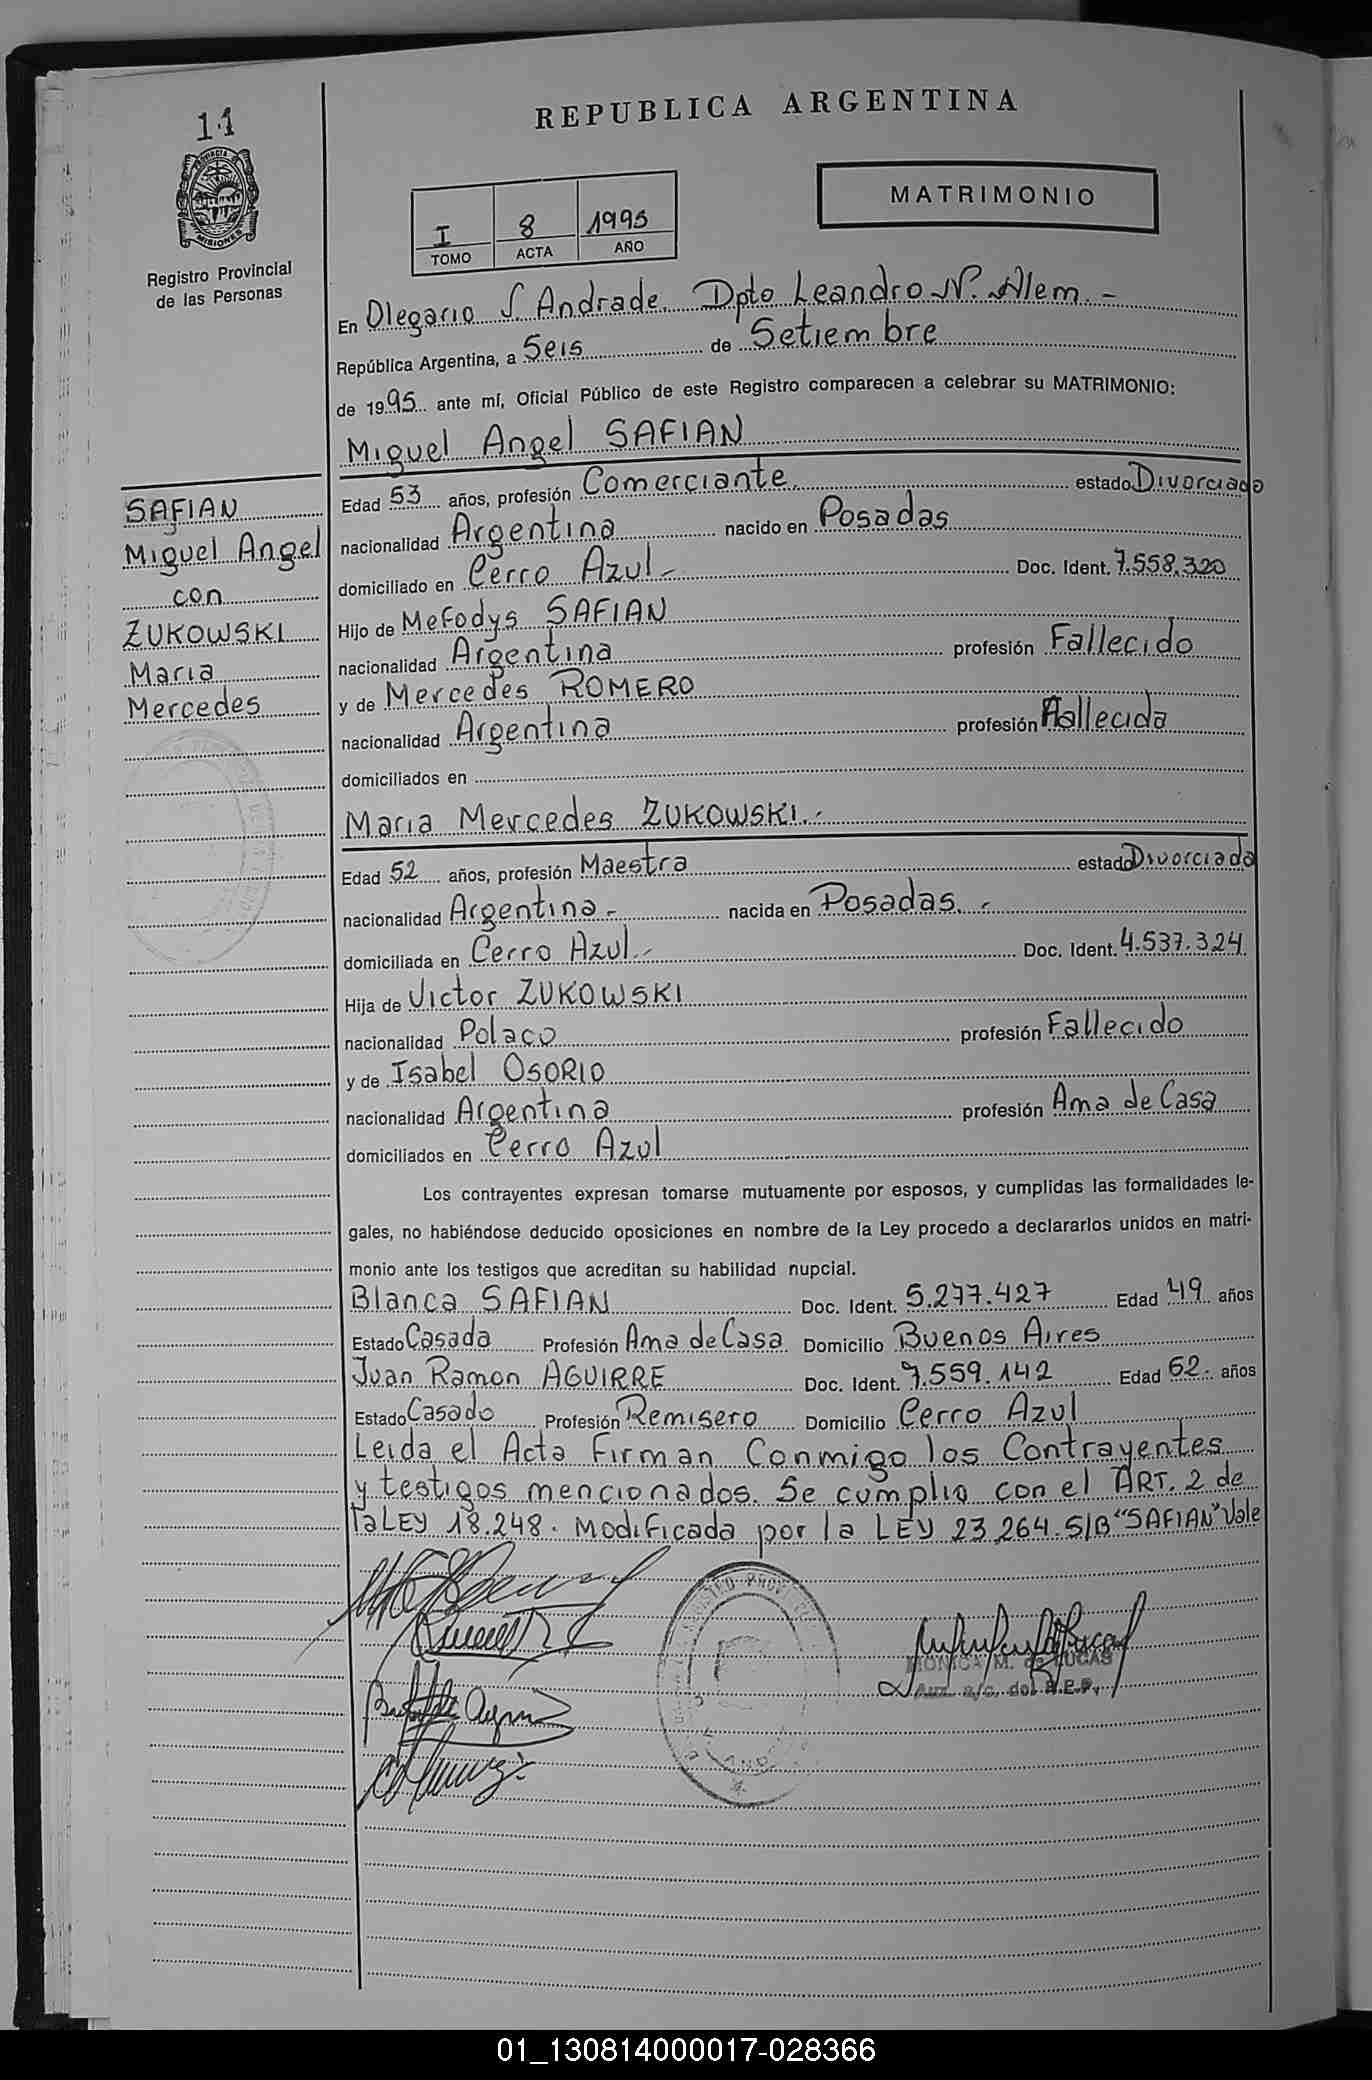 11
PROVINCIA DE
MISIONES
Registro Provincial
de las Personas
REPUBLICA ARGENTINA
MATRIMONIO
I 8 1995
TOMO ACTA AÑO
SAFIAN
Miguel Angel
con
ZUKOWSKI
Maria
Mercedes
En Olegario V. Andrade. Dpto Leandro N. Alem. -
República Argentina, a Seis de Setiembre
de 1995 ante mí, Oficial Público de este Registro comparecen a celebrar su MATRIMONIO:
Miguel Angel SAFIAN
Edad 53 años, profesión Comerciante. estado Divorciado
nacionalidad Argentina nacido en Posadas
domiciliado en Cerro Azul.- Doc. Ident. 7.558.320
Hijo de Mefodys SAFIAN
nacionalidad Argentina profesión Fallecido
y de Mercedes ROMERO
nacionalidad Argentina profesión Fallecida
domiciliados en
Maria Mercedes ZUKOWSKI.-
Edad 52 años, profesión Maestra estado Divorciada
nacionalidad Argentina.- nacida en Posadas. -
domiciliada en Cerro Azul.- Doc. Ident. 4.537.324
Hija de Victor ZUKOWSKI
nacionalidad Polaco profesión Fallecido
y de Isabel OSORIO
nacionalidad Argentina profesión Ama de Casa
domiciliados en Cerro Azul
Los contrayentes expresan tomarse mutuamente por esposos, y cumplidas las formalidades le-
gales, no habiéndose deducido oposiciones en nombre de la Ley procedo a declararlos unidos en matri-
monio ante los testigos que acreditan su habilidad nupcial.
Blanca SAFIAN Doc. Ident. 5.277.427 Edad 49 años
Estado Casada Profesión Ama de Casa Domicilio Buenos Aires
Juan Ramon AGUIRRE Doc. Ident. 7.559.142 Edad 62.- años
Estado Casado Profesión Remisero Domicilio Cerro Azul
Leida el Acta Firman Conmigo los Contrayentes
y testigos mencionados. Se cumplio con el ART. 2 de
la LEY 18.248. Modificada por la LEY 23.264. S/B "SAFIAN" Vale
MONICA M. de LUCAS
Aux. a/c. del R.E.P.
01_130814000017-028366